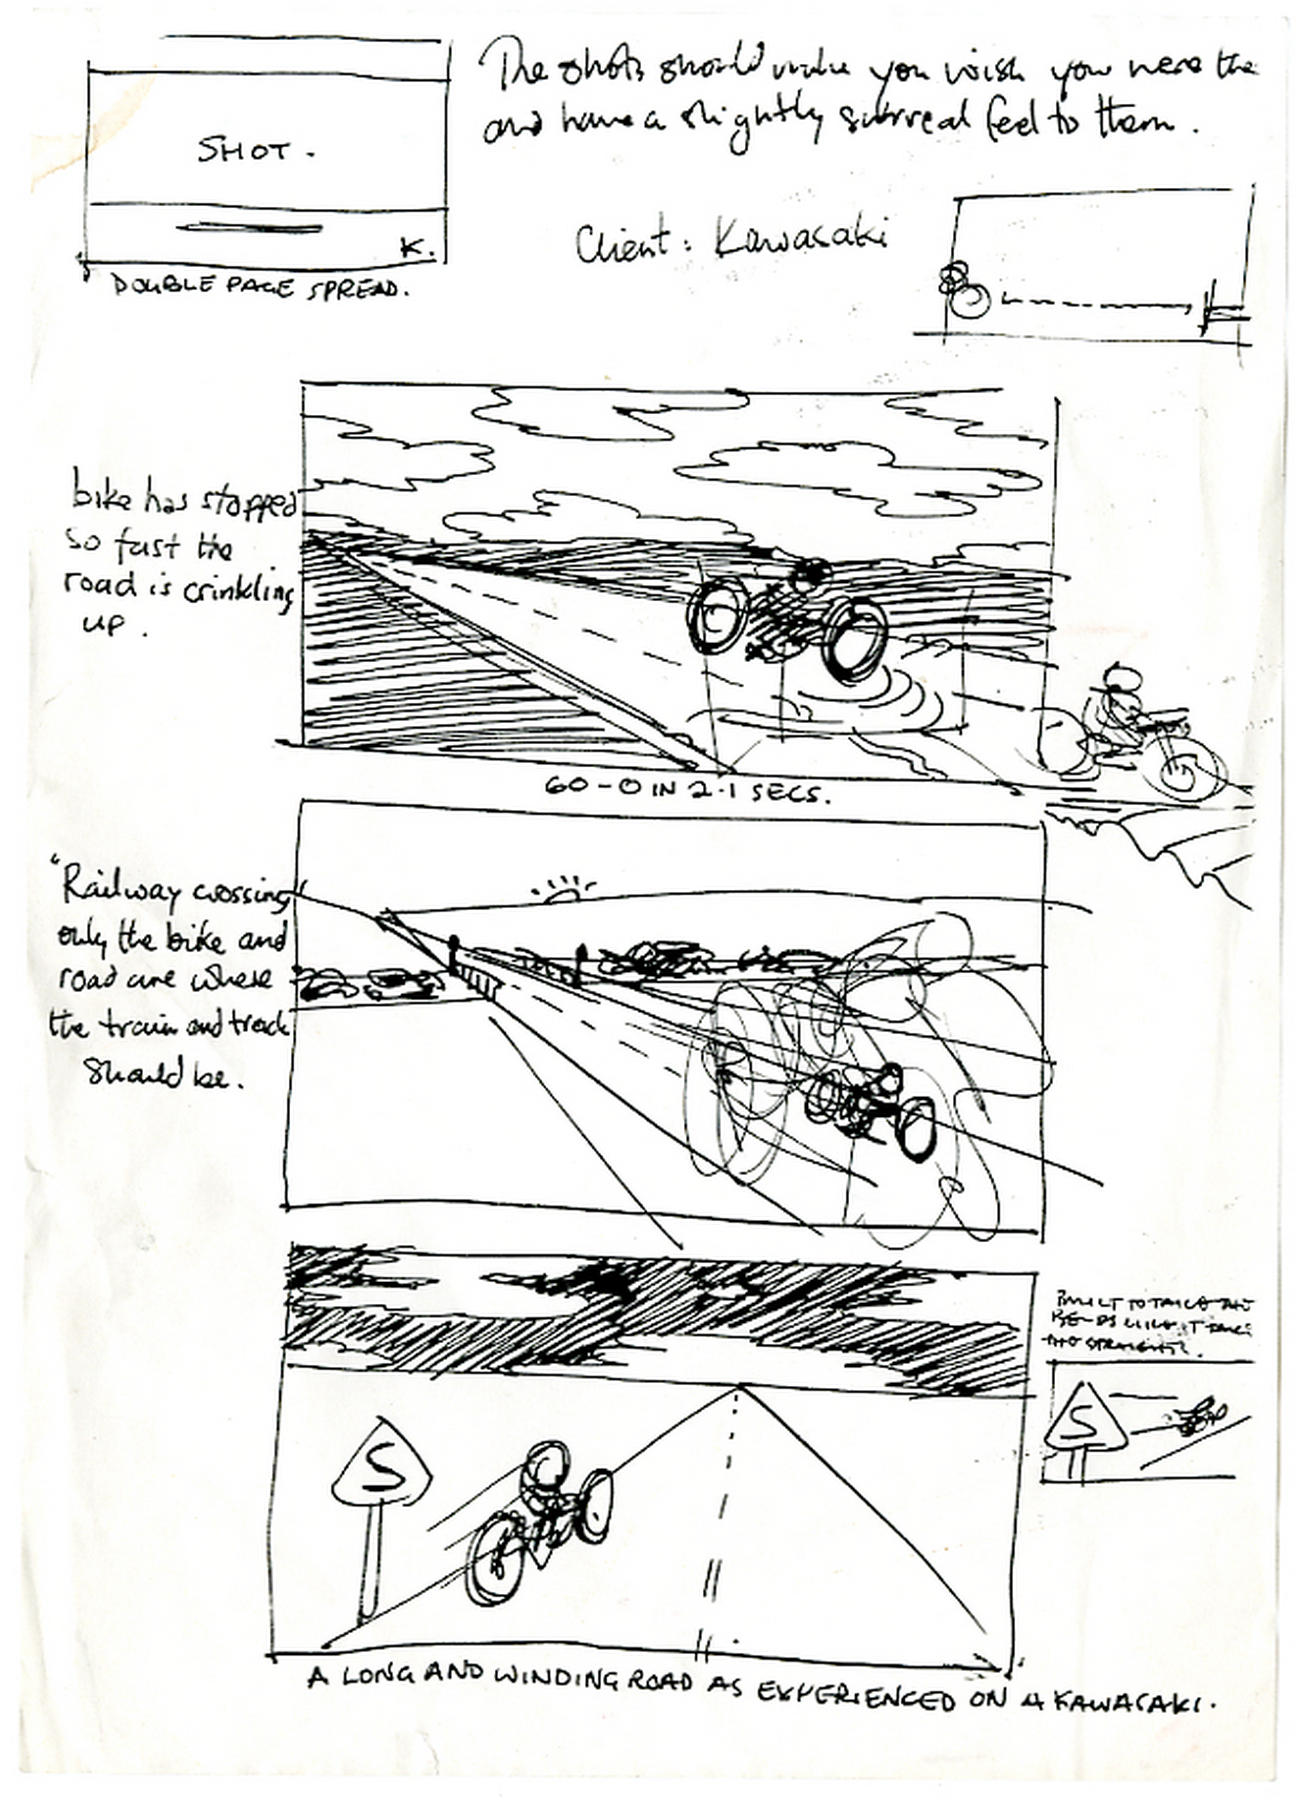 The shots should make you wish you were the
and have a slightly surreal feel to them.
SHOT.
K.
DOUBLE PAGE SPREAD.
Client: Kawasaki
bike has stopped
so fast the
road is crinkling
up.
60-0 IN 2.1 SECS.
"Railway crossing
only the bike and
road are where
the train and track
should be.
BUILT TO TAKE THE
BENDS LIKE IT TAKES
THE STRAIGHTS.
S
S
A LONG AND WINDING ROAD AS EXPERIENCED ON A KAWASAKI.